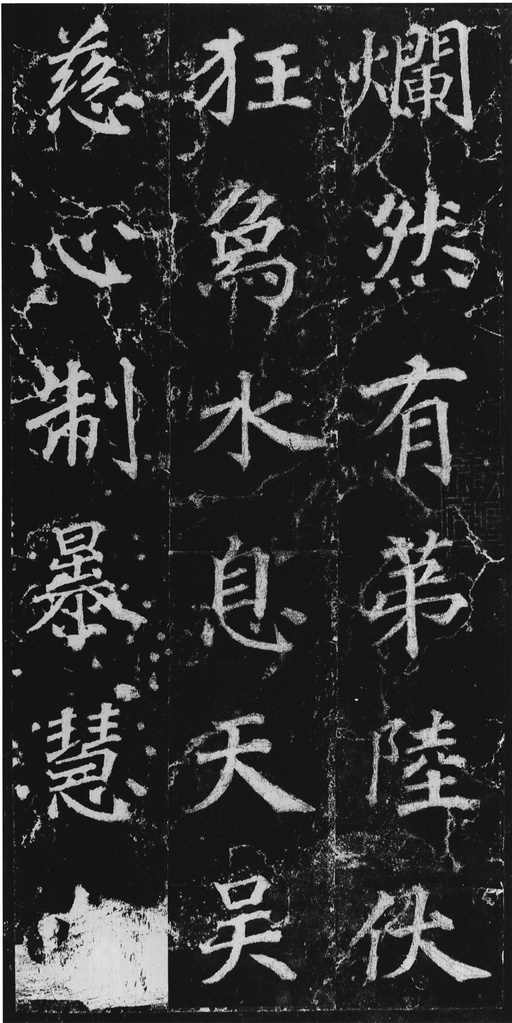 爛然有苐陸伏
狂象水息天吴
慈心制暴慧